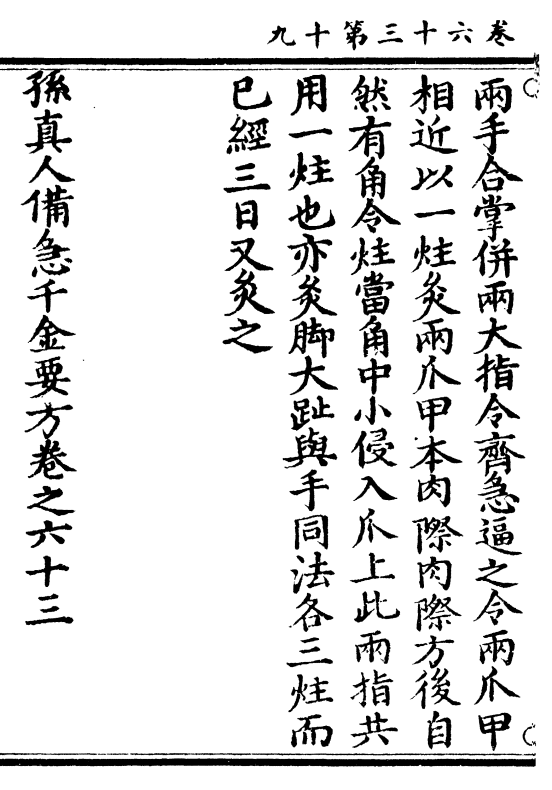 卷六十三第十九
兩手合掌併兩大指令齊急逼之令兩爪甲
相近以一炷灸兩爪甲本肉際肉際方後自
然有角令炷當角中小侵入爪上此兩指共
用一炷也亦灸脚大趾與手同法各三炷而
已經三日又灸之
孫真人備急千金要方卷之六十三